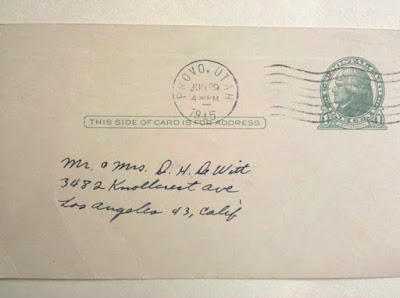 PROVO, UTAH
JUN 29
PM
1945
THIS SIDE OF CARD IS FOR ADDRESS
Mr. & Mrs. D. H. DeWitt
3482 Knollcrest ave
Los Angeles 43, Calif